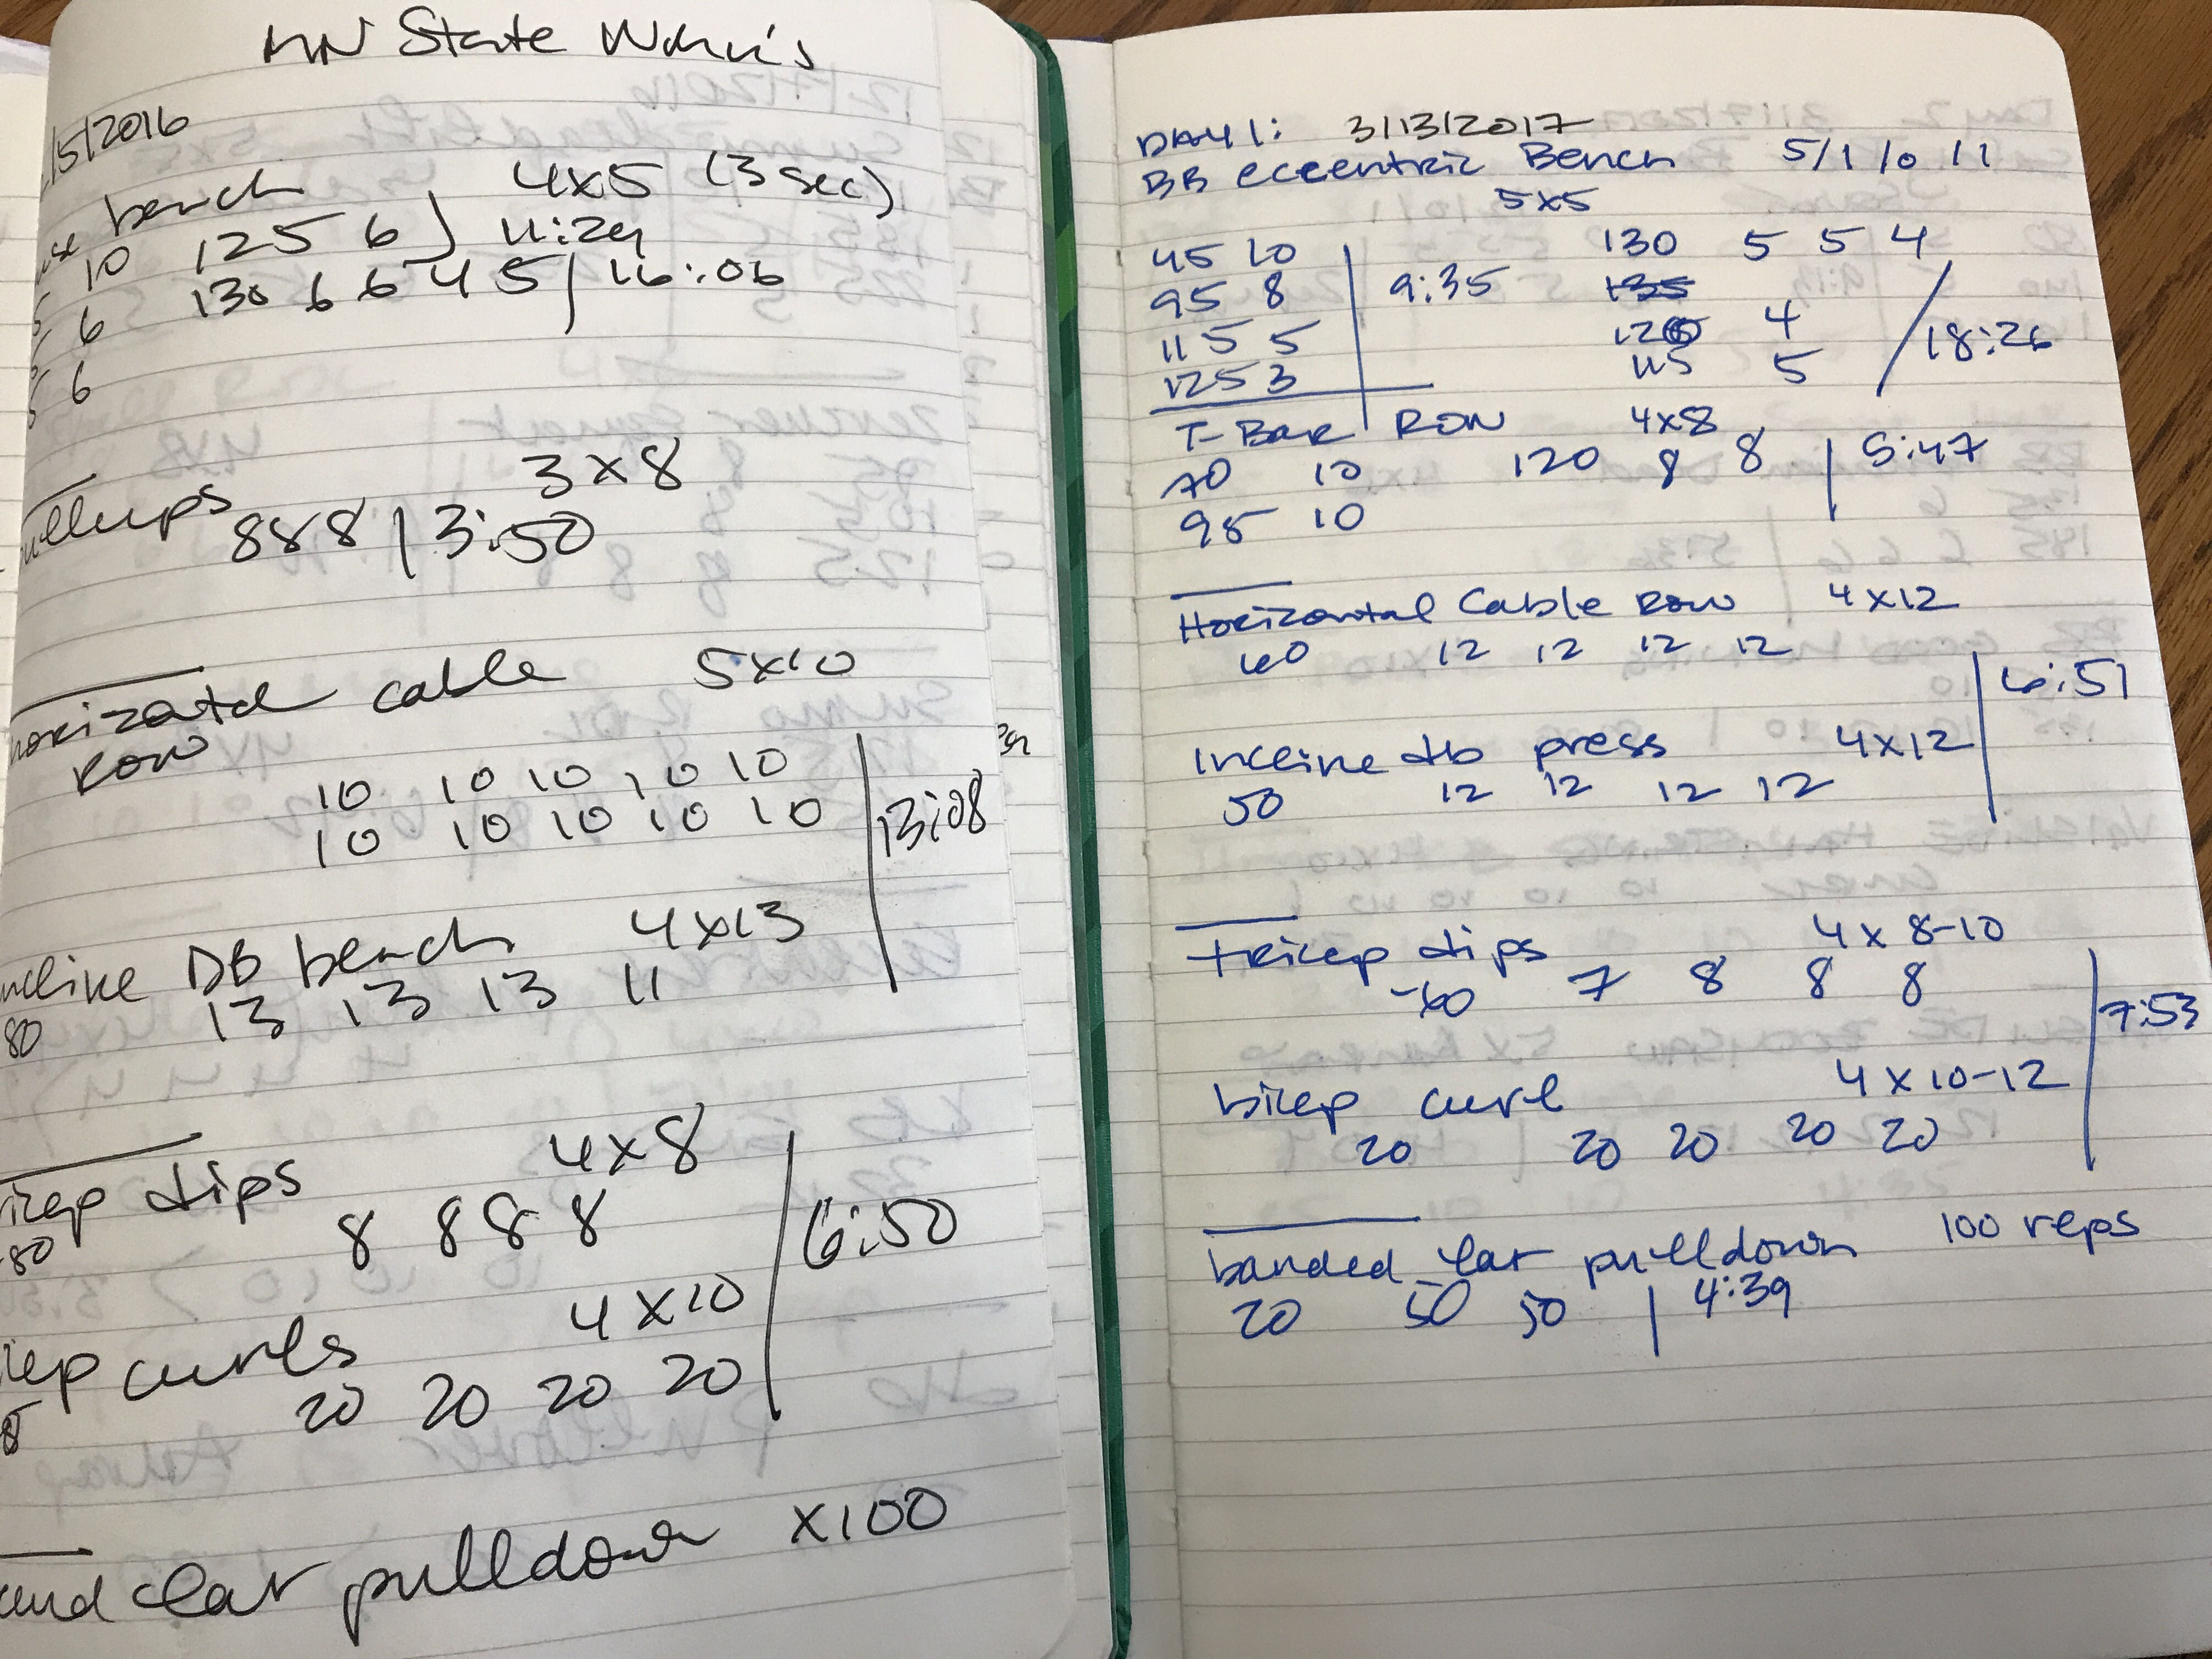 MN State
/5/2016
bench 4x5 (3 sec)
10 125 6 ) 11:29
6 130 6 6 4 5 | 16:06
6
ullups 3x8
8 8 8 | 3:50
horizontal cable 5x10
Row
10 10 10 10 10
10 10 10 10 10 | 13:08
ncline DB bench 4x13
80 13 13 13 11
ricep dips 4x8
80 8 8 8 8 | 6:50
icep curls 4x10
20 20 20 20
and lat pulldown x100
DAY 1: 3/13/2017
BB eccentric Bench 5/1/0/1
5x5
45 10 130 5 5 4
95 8 | 9:35 135
115 5 4 / 18:26
125 3 115 5
T-Bar Row 4x8
70 10 120 8 8 | 5:47
95 10
Horizontal Cable Row 4x12
60 12 12 12 12
| 6:51
Incline db press 4x12
50 12 12 12 12
tricep dips 4 x 8-10
-60 7 8 8 8
| 7:53
bicep curl 4 x 10-12
20 20 20 20 20
banded lat pulldown 100 reps
20 50 50 | 4:39